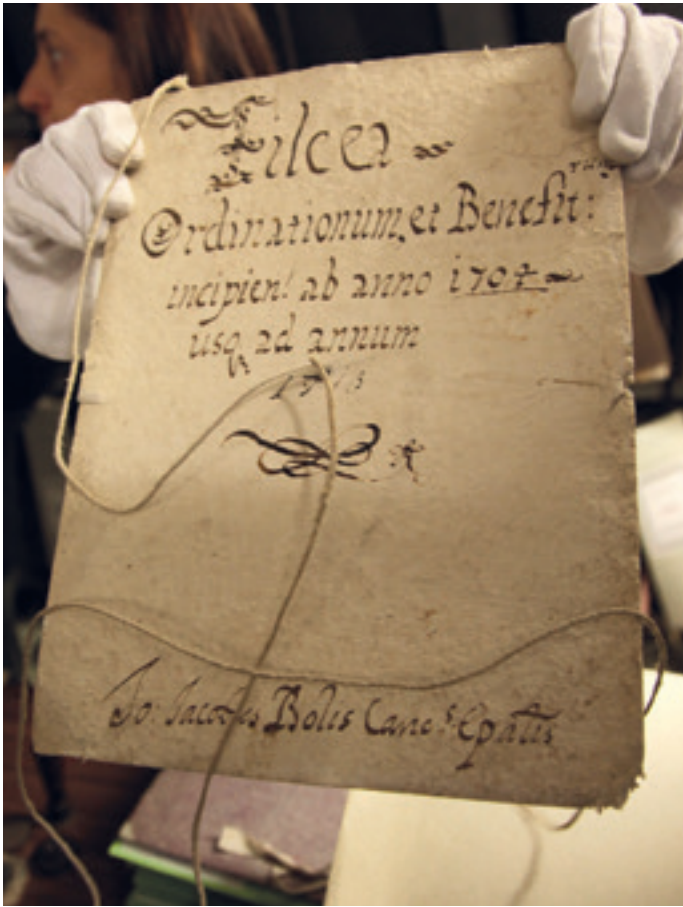 Filcea
Ordinationum, et Benefit:
incipien! ab anno 1704
usq ad annum
Jo: Jacobus Bolis Canc:s Epalis